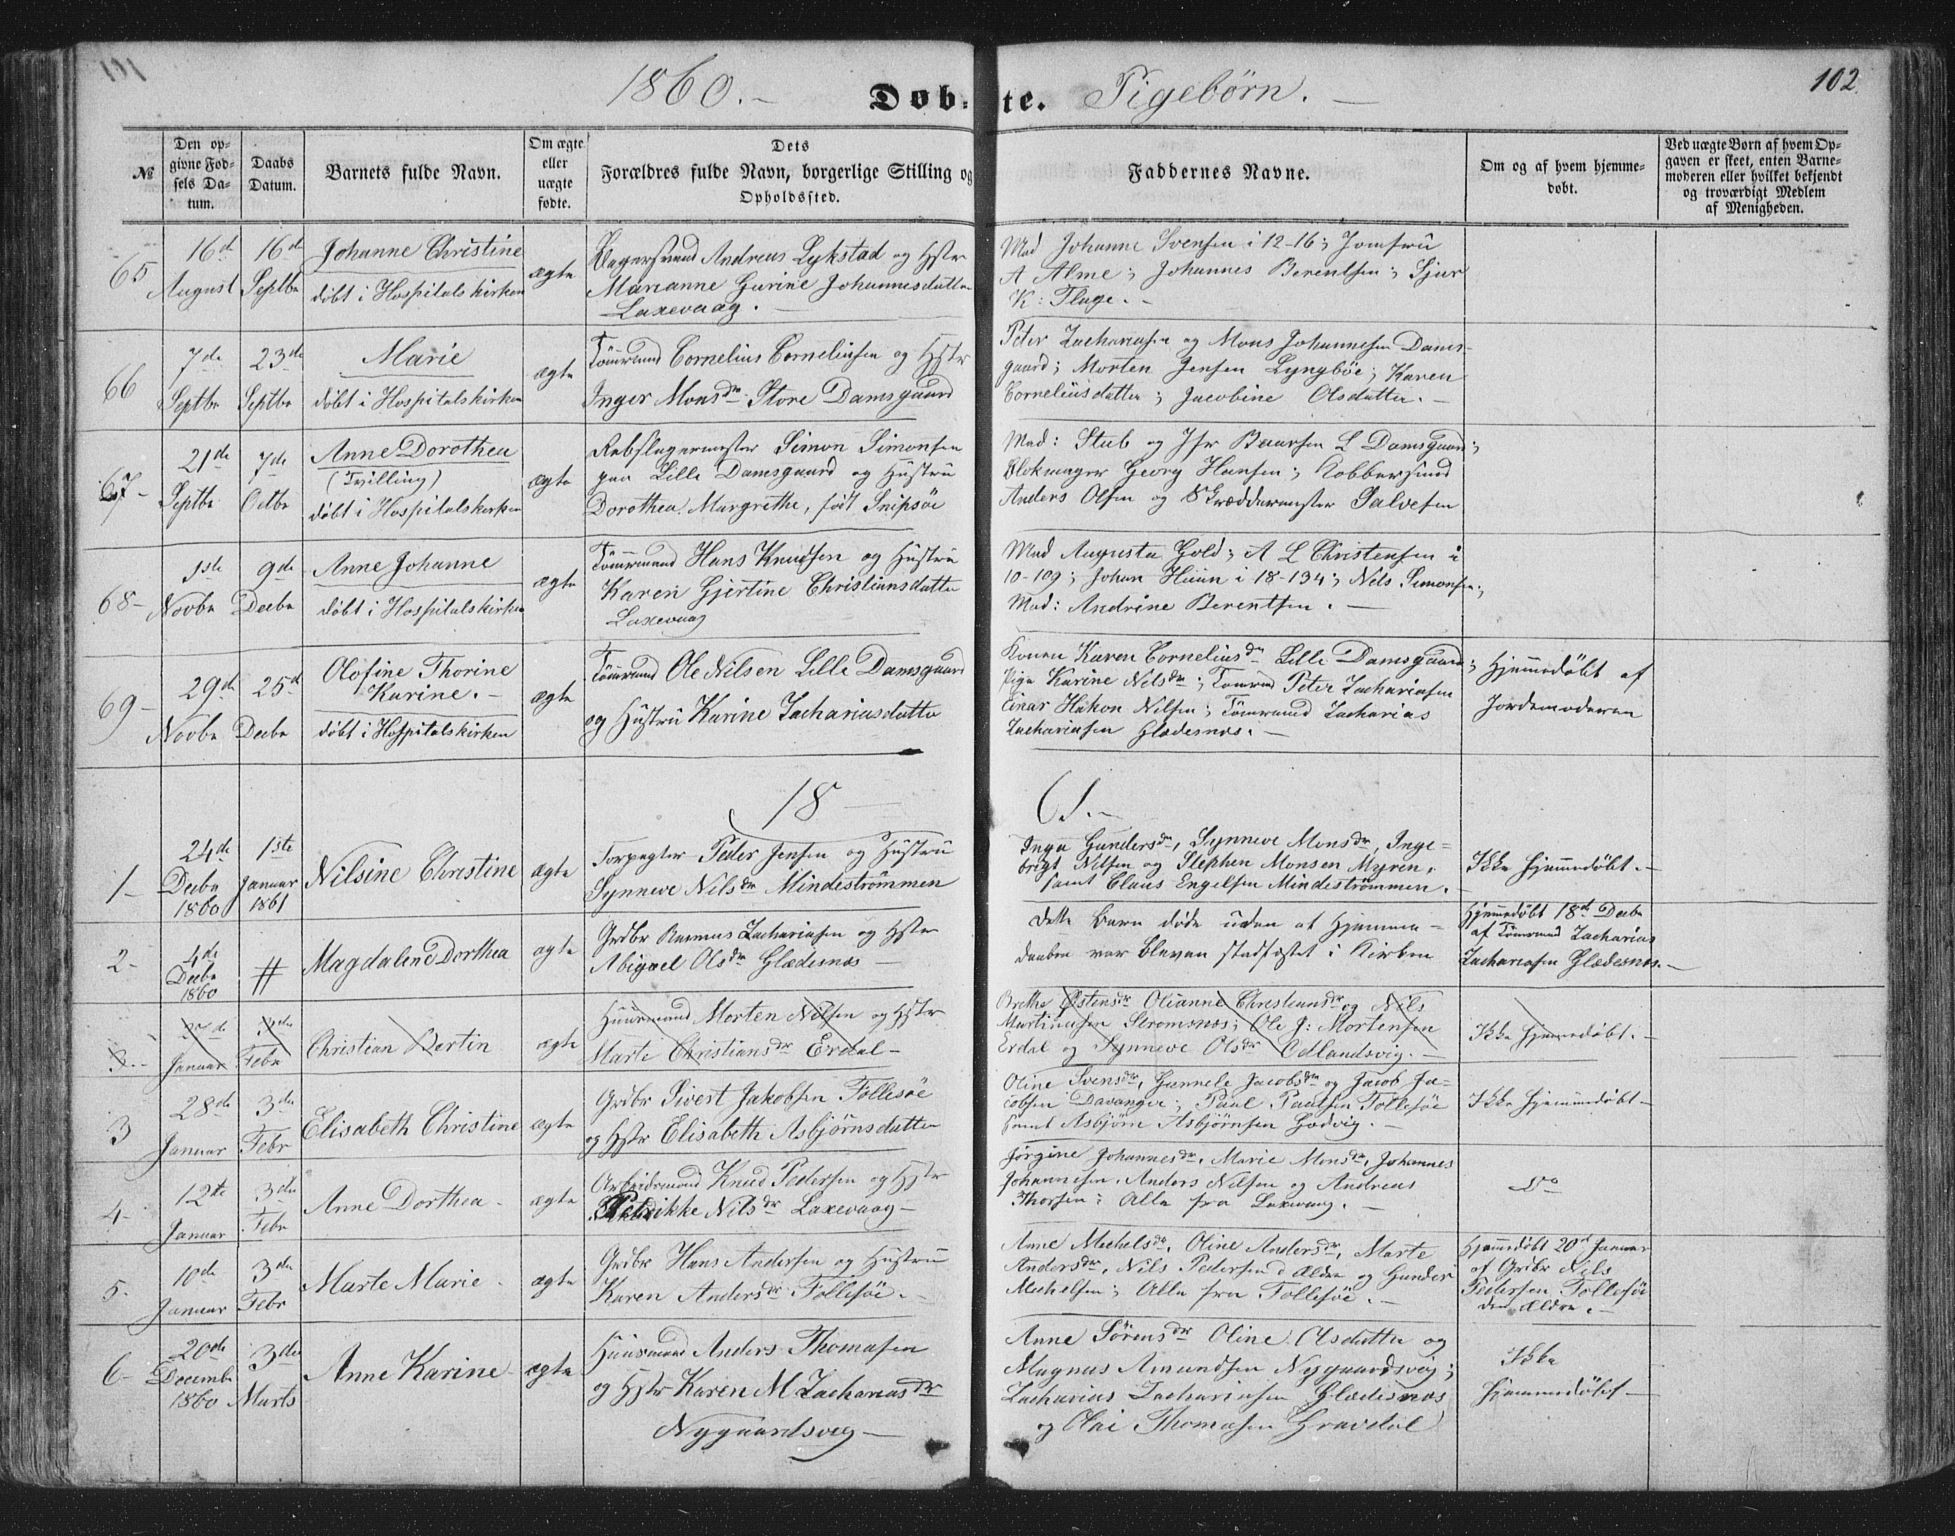 101
102
1860.-
Døb-te. Pigebørn.-
№
Den op-
givne Fød-
sels Da-
tum.
Daabs
Datum.
Barnets fulde Navn.
Om ægte
eller
uægte
fødte.
Dets
Forældres fulde Navn, borgerlige Stilling og
Opholdssted.
Faddernes Navne.
Om og af hvem hjemme-
døbt.
Ved uægte Børn af hvem Op-
gaven er skeet, enten Barne-
moderen eller hvilket bekjendt
og troværdigt Medlem
af Menigheden.
65
16de
August
16de
Septbr
Johanne Christine
døbt i Hospitalskirken
ægte
Andreas Lykstad og Hstr
Marianne Gurine Johannesdatter
Laxevaag.
Mad Johanne Svensen i 12-16; Jomfru
A Alme; Johannes Berentsen; Sjur
K: Fluge.-
66
7de
Septbr
23de
Septbr
Marie
døbt i Hospitalskirken
ægte
Tømmrmd Cornelius Corneliusen og Hstr
Inger Monsdr Store Damsgaard
Peter Zachariasen og Mons Johannesen Dams-
gaard; Morten Jensen Lyngbøe; Karen
Corneliusdatter; Jacobine Olsdatter.-
67-
21de
Septbr
7de
Octbr
Anne Dorothea
(Tvilling)
døbt i Hospitalskirken
ægte
Rebslagermester Simon Simonsen
paa Lille Damsgaard og Hustru
Dorothea Margrethe, født Snipsøe
Mad: Stub og Jfr Baarsen L Damsgaard;
Blokmager Georg Hansen; Kobbersmed
Anders Olsen og Skræddermester Salvesen
68-
1ste
Novbr
9de
Decbr
Anne Johanne
døbt i Hospitalskirken
ægte
Tømmrmd Hans Knudsen og Hustru
Karen Gjertine Christiansdatter
Laxevaag
Mad Augusta Gold; A L Christensen i
10-109; Johan Huun i 18-134; Nels Simonsen;
Mad: Andrine Berentsen.-
69-
29de
Novbr
25de
Decbr
Olofine Thorine
Karine.-
døbt i Hospitalskirken
ægte
Tømmrmd Ole Nilsen Lille Damsgaard
og Hustru Karine Zachariasdatter
Konen Karen Corneliusdr Lille Damsgaard;
Pige Karine Nelsdr; Tømrmd Peter Zachariasen
Einar Håkon Nilsen; Tømmrmd Zacharias
Zachariasen Gladesnæs.-
Hjemmedøbt af
Jordemoderen
18
61.-
1-
24de
Decbr
1860
1ste
Januar
1861
Nilsine Christine
ægte
Forpagter Peder Jensen og Hustru
Synneve Nilsdr Mindestrømmen
Inga Gundersdr, Synneve Monsdr, Inge-
brigt Nilsen og Stephen Monsen Myren,
samt Claus Engelsen Mindestrømmen.
Ikke hjemmedøbt.-
2-
4de
Decbr
1860
#
Magdalene Dorthea
ægte
Grdbr Rasmus Zachariasen og Hstr
Abigael Olsdr Gladesnæs-
Dette Barn døde uden at Hjemme-
daaben var bleven stadfæstet i Kirken
Hjemmedøbt 18de Decbr
af Tømrmd Zacharias
Zachariasen Gladesnæs.-
3.-
Januar
3de
Febr
Christian Bertin
ægte
Huusmand Morten Nilsen og Hstr
Marte Christiansdr Erdal-
Brethe Østensdr Olianne Christiansdr og Nils
Martinussen Strømsnæs; Ole J: Mortensen
Erdal og Synneve Olsdr Odlandsvig.-
Ikke hjemmedøbt.-
3
28de
Januar
3de
Febr
Elisabeth Christine
ægte
Grdbr Sivert Jakobsen Follesøe
og Hstr Elisabeth Asbjørnsdatter
Oline Svensdr, Gunnele Jacobsdr og Jacob Ja-
cobsen Davanger; Paul Paulsen Follesøe
samt Asbjørn Asbjørnsen Godvig.-
Ikke hjemmedøbt-
4-
12te
Januar
3de
Febr
Anne Dorthea-
ægte
Arbeidsmand Knud Pedersen og Hstr
Petrikke Nilsdr Laxevaag-
Jørgine Johannesdr, Marie Monsdr, Johannes
Johannesen, Anders Nilsen og Andreas
Thorsen: Alle fra Laxevaag.-
Do
5-
10de
Januar
3de
Febr
Marte Marie-
ægte
Grdbr Hans Andersen og Hustru
Karen Andersdr Follesøe.-
Anne Mechelsdr, Oline Andersdr, Marte
Andersdr, Nils Pedersen d Ældre og Gunder
Mechelsen; Alle fra Follesøe.-
Hjemmedøbt 20de Januar
af Grdbr Nils
Pedersen Follesøe
den Ældre.-
6-
20de
Decembr
1860
3de
Marts
Anne Karine
ægte
Huusmand Anders Thomasen
og Hstr Karen M Zachariasdr
Nygaardsvig-
Anne Sørensdr Oline Olsdatter og
Magnus Amundsen Nygaardsvig;
Zacharias Zachariasen Gladesnæs
og Olai Thomasen Gravdal
Ikke
hjemmedøbt-